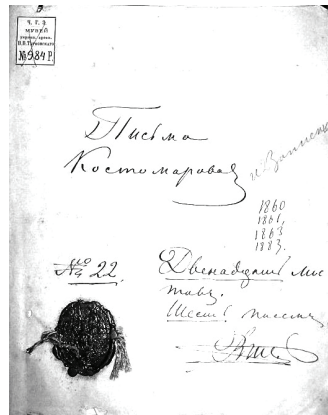 Ч. Г. З.
МУЗЕЙ
украин. древн.
В.В. Тарновского
№ 984 Р.
Письма
Костомарова
и Записки
1860
1861,
1863
1883.
№ 22.
Двенадцать лис
товъ.
Шесть писемъ